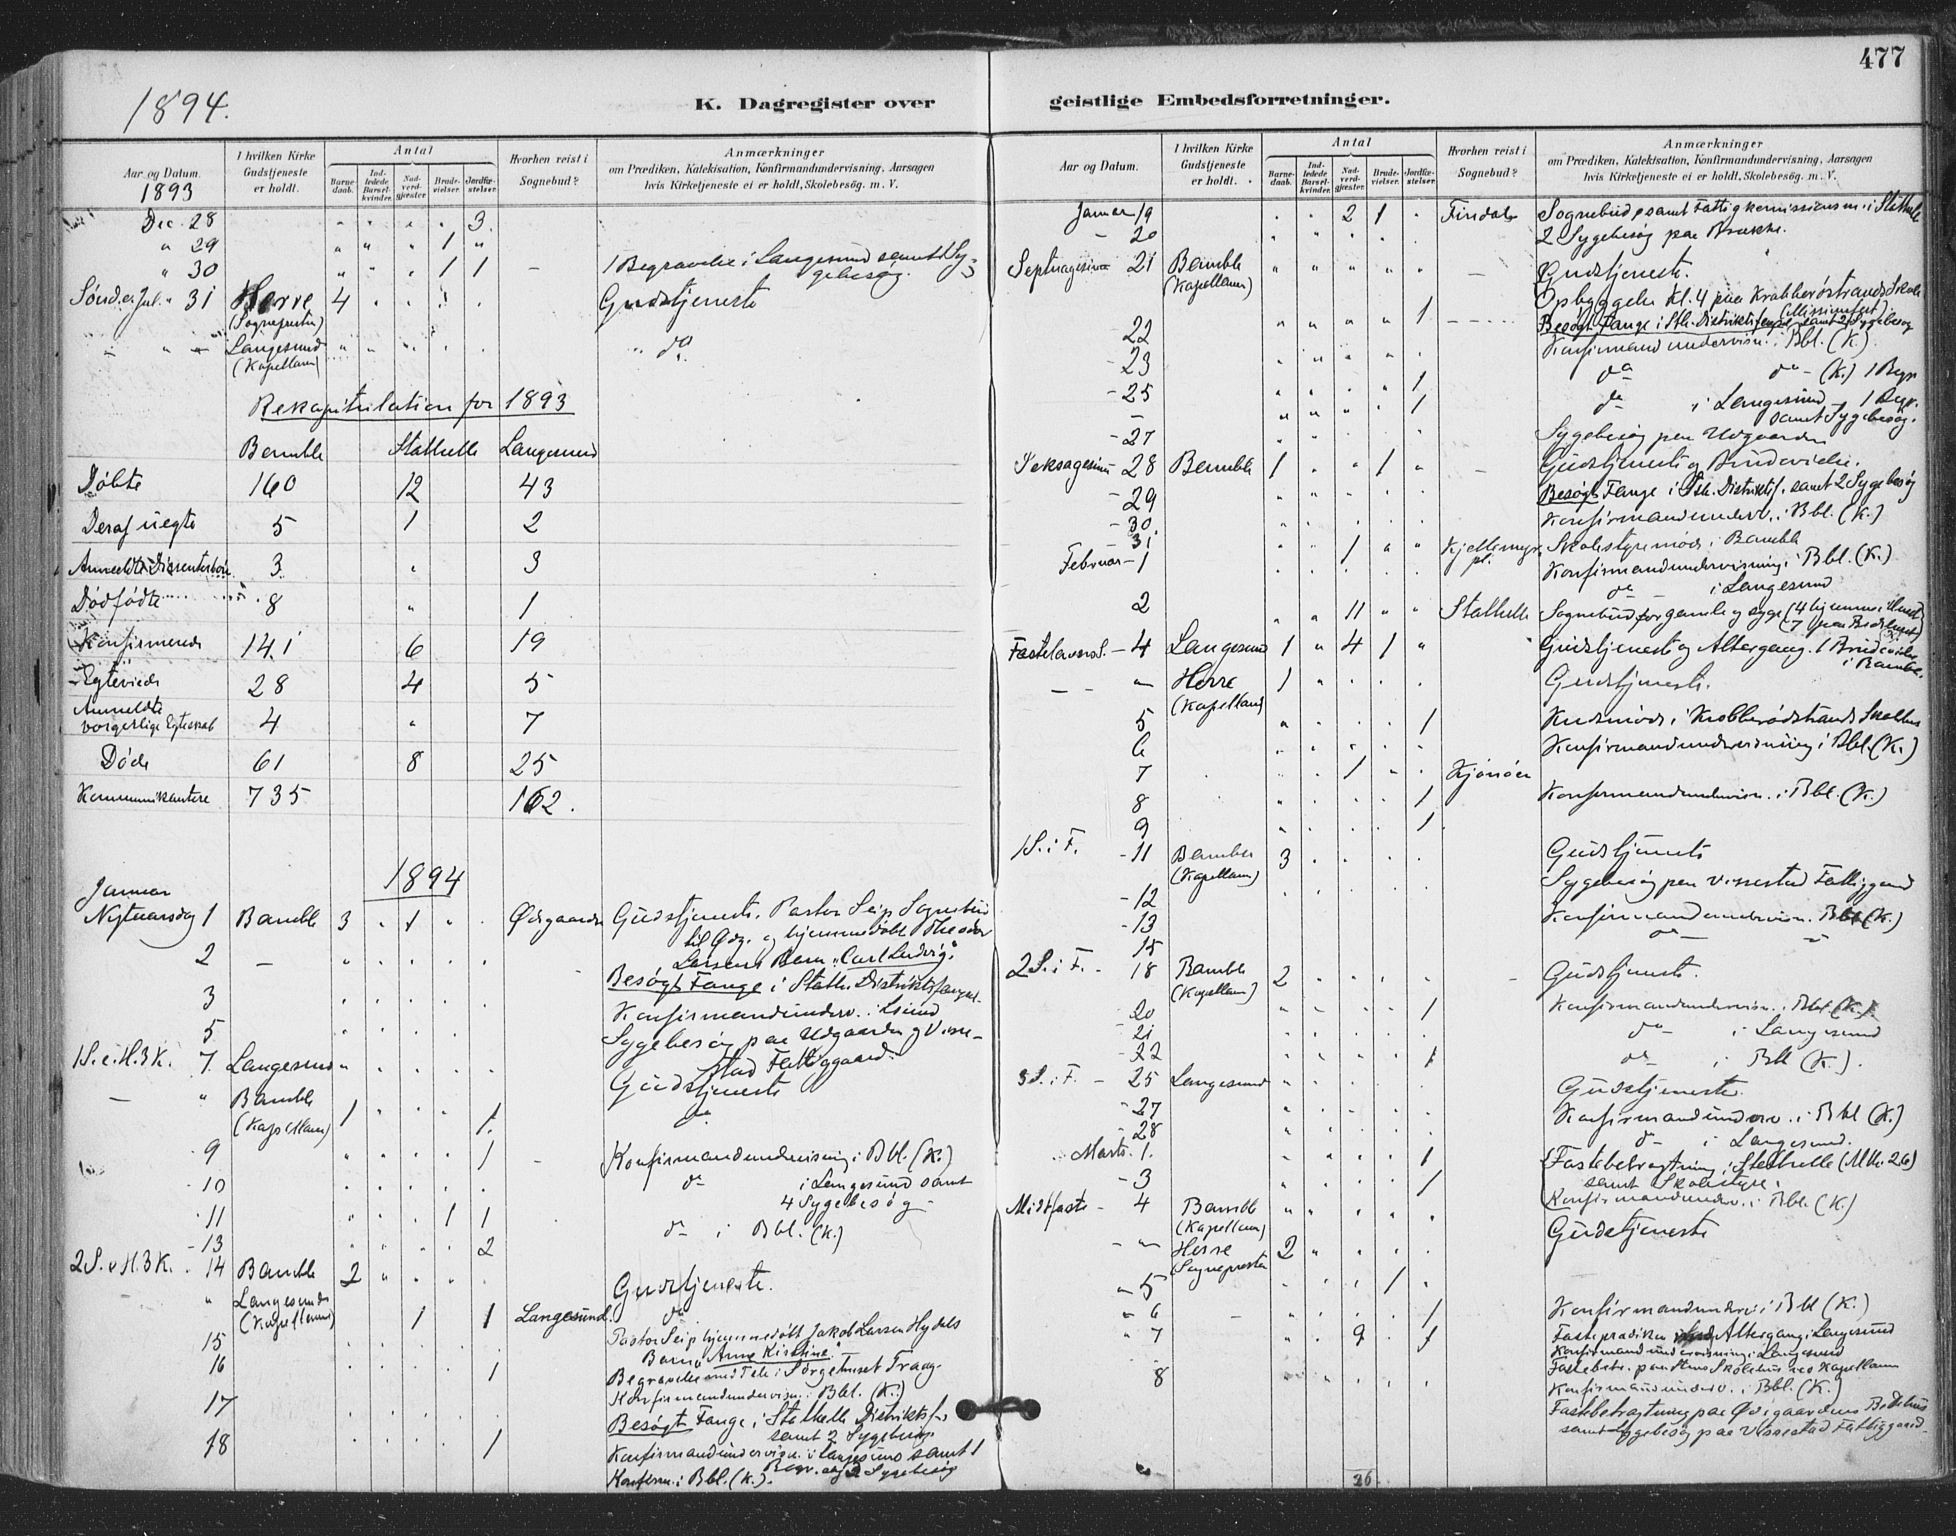 477
1894.
K. Dagregister over geistlige Embedsforretninger.
Aar og Datum.
1893
I hvilken Kirke Gudstjeneste er holdt.
Antal
Barnedaab.
Indledede Barselkvinder.
Nadverdgjæster.
Brudevielser.
Jordfæstelser.
Hvorhen reist i Sognebud?
Anmærkninger
om Prædiken, Katekisation, Konfirmandundervisning, Aarsagen
hvis Kirketjeneste ei er holdt, Skolebesøg. m. V.
Dec. 28 " " " " 3.
" 29 " " " 1 "
" 30 " " " 1 1 - 1 Begravelse i Langesund samt 1 Sygebesøg.
Sønd. e. Jul. " 31 Herre 4 Gudstjeneste
(Sognepresten)
- " - Langesund do
(Kapellanen)
Rekapitulation for 1893
Bamble Stathelle Langesund
Døbte 160 12 43
Deraf uegte 5 1 2
Anmeldte Dissenterbørn 3 " 3
Dødfødte 8 " 1
Konfirmerede 141 6 19
Egteviede 28 4 5
Anmeldte
borgerlige Egteskab 4 " 7
Døde 61 8 25
Kommunikantere 735 162.
1894
Januar
Nytaarsdag 1 Bamble 3 . 1 " . Ødegaarden Gudstjeneste. Pastor Seip Sognebud
til Ødg. og hjemmedøbt Theodor
Larsens Barn "Carl Ludvig".
2 - Besøgt Fange i Stath. Distriktsfængsel.
3 Konfirmandunderv. i Lsund
5 Sygebesøg paa Udgaarden og Visse-
stad Fattiggaard.
1 S. e. H. 3 K. 7. Langesund Gudstjeneste
- " Bamble 1 1. do
(Kapellanen)
9 1 - Konfirmandundervisning i Bbl. (K.)
10 do i Langesund samt
4 Sygebesøg -
11 1 1 do i Bbl. (K.)
13 2
2 S. e. H. 3 K. 14 Bamble 2 Gudstjeneste.
" Langesund 1 1 Langesund. do
(Kapellanen)
15 Pastor Seip hjemmedøbt Jakob Larsen Hydels
Barn "Anne Kirstine".
16 1 Begravelse med Tale i Sørgehuset Traag.
Konfirmandundervisn. i Bbl. (K.)
17 Besøgt Fange i Stathelle Distriktsf.
samt 2 Sygebesøg
18 1 Konfirmandundervisn. i Langesund samt 1
Konfirm. i Bbl. (K.). Begr. og 2 Sygebesøg
Aar og Datum.
I hvilken Kirke Gudstjeneste er holdt.
Antal
Barnedaab.
Indledede Barselkvinder.
Nadverdgjæster.
Brudevielser.
Jordfæstelser.
Hvorhen reist i Sognebud?
Anmærkninger
om Prædiken, Katekisation, Konfirmandundervisning, Aarsagen
hvis Kirketjeneste ei er holdt, Skolebesøg. m. V.
Januar 19 2 1 Findal Sognebud samt Fattigkommissionsm. i Stathelle
- 20 2 Sygebesøg paa
Septuagesima 21 Bamble - Gudstjeneste.
(Kapellanen) Opbyggelse Kl. 4 paa Krabberødstrands Skole
1 (Missionsfest)
22 Besøgt Fange i Sth. Distriktsfængsel samt 2 Sygebesøg
- 23 Konfirmandundervisn. i Bbl. (K.)
- 25 1 do do - (K.) 1 Begr.
- 1 do i Langesund - 1 Begr.
samt Sygebesøg.
- 27 Sygebesøg paa Udgaarden
Seksagesima - 28 Bamble 1 . . 1 " - Gudstjeneste og Brudevielse.
- 29 Besøgt Fange i Sth. Distriktsf. samt 2 Sygebesøg
- 30. Konfirmandunderv. i Bbl. (K.)
31 1 Kjellemyr Skolestyremøde i Bamble
pl.
Februar - 1 Konfirmandundervisning i Bbl. (K.)
do - i Langesund
2 11 Stathelle Sognebud for gamle og syge (4 hjemme i Huset
(7 paa Bedehuset)
Fastelavns S. - 4 Langesund 1 " 4 1 " Gudstjeneste og Altergang. 1 Brudevielse
i Bamble.
- - " Herre 1 Gudstjeneste.
(Kapellanen)
5 1 Kredsmøde i Krabberødstrands Skolehus
6 Konfirmandundervisning i Bbl. (K.)
7 1 Kjønnøen
8 1 Konfirmandundervisn. i Bbl. (K.)
9 1
1 S. i F. - 11 Bamble 3 Gudstjeneste
(Kapellanen)
- 12 Sygebesøg paa Vissestad Fattiggaard
- 13 Konfirmandundervisn. Bbl (K.)
15 do -
2 S. i F. - 18 Bamble 2 Gudstjeneste.
(Kapellanen)
20 1 Konfirmandundervisn. i Bbl (K.).
- 21 do - i Langesund
- 22 1 do i Bbl (K.).
3 S. i F. - 25 Langesund Gudstjeneste.
- 27 Konfirmandunderv. i Bbl (K.)
- 28 do i Langesund.
Marts 1. 1 Fastebetragtning i Stathelle (Mth. 26)
samt Skolestyre.
- 3 1 Konfirmandunderv. i Bbl. (K.)
Midfaste - 4 Bamble Gudstjeneste
(Kapellanen)
- " Herre 2
(Sognepresten)
" 5 1
" 6 - 1 Konfirmandunderv. i Bbl (K.)
" 7 9 . 1 Fasteprædiken Altergang i Langesund
Konfirmandundervisning i Langesund
Fastebetr. paa Skolehus ved Kapellanen
8 Konfirmandunderv. i Bbl. (K.)
Fastebetragtning paa Ødegaardens Bedehus
samt Sygebesøg paa Vissestad Fattiggaard.
26